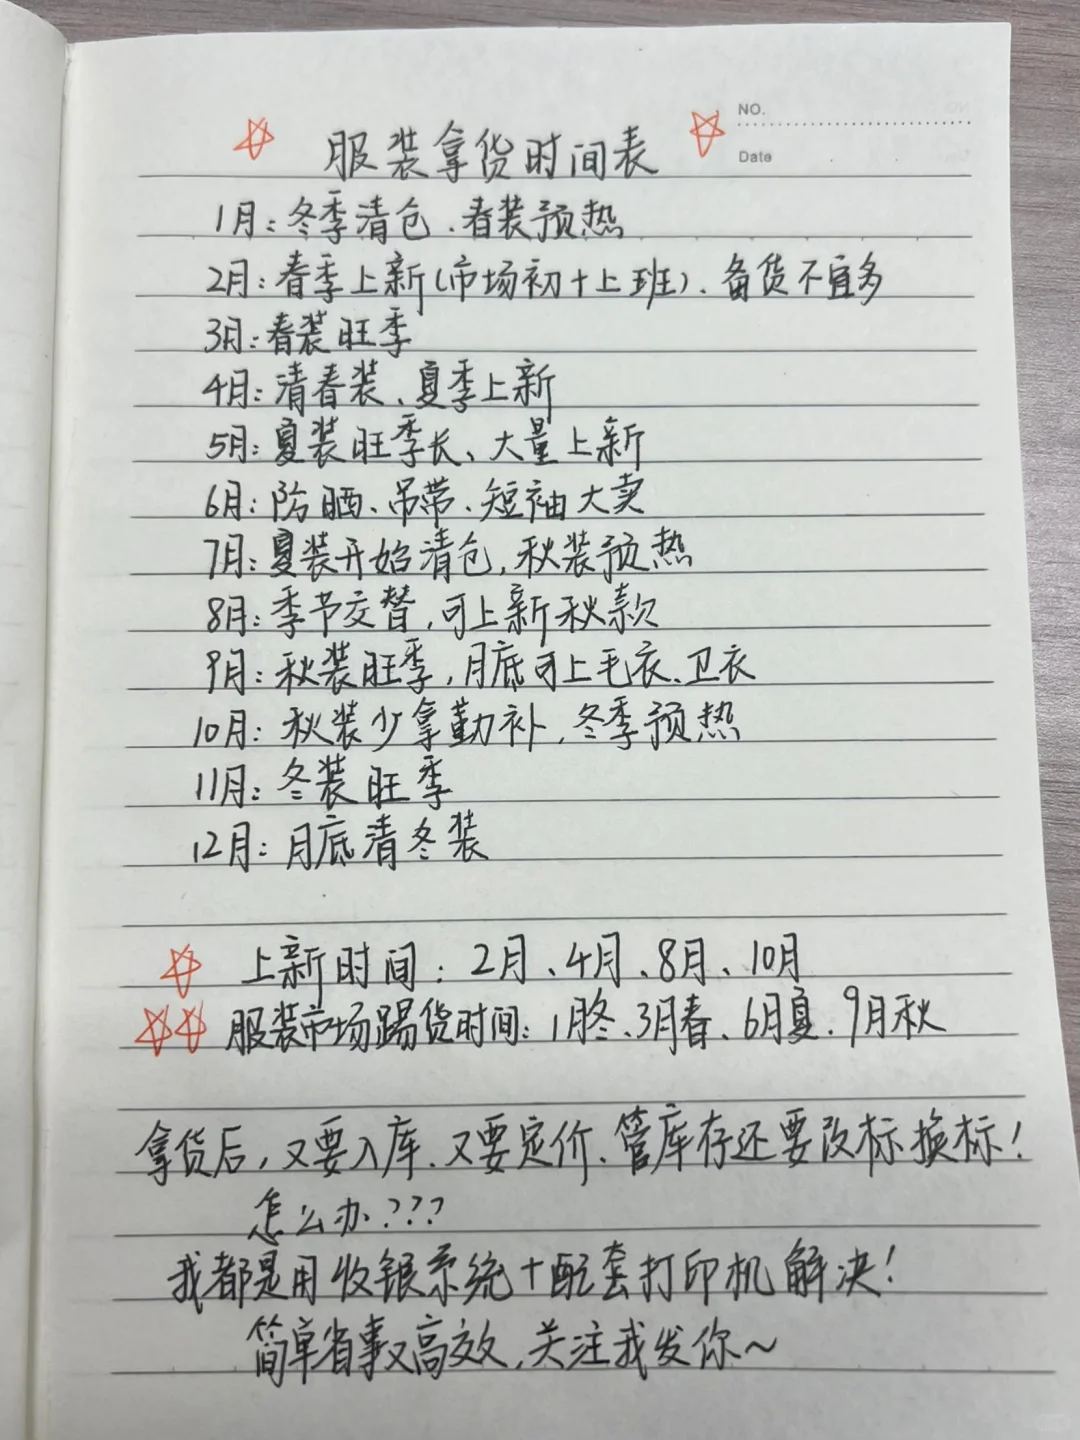 NO.
Date
服装拿货时间表
1月：冬季清仓、春装预热
2月：春季上新(市场初十上班)、备货不宜多
3月：春装旺季
4月：清春装、夏季上新
5月：夏装旺季长、大量上新
6月：防晒、吊带、短袖大卖
7月：夏装开始清仓，秋装预热
8月：季节交替，可上新秋款
9月：秋装旺季，月底可上毛衣、卫衣
10月：秋装少拿勤补，冬季预热
11月：冬装旺季
12月：月底清冬装
上新时间：2月、4月、8月、10月
服装市场踢货时间：1月冬、3月春、6月夏、9月秋
拿货后，又要入库、又要定价、管库存还要改标换标！
怎么办？？？
我都是用收银系统+配套打印机解决！
简单省事又高效，关注我发你~